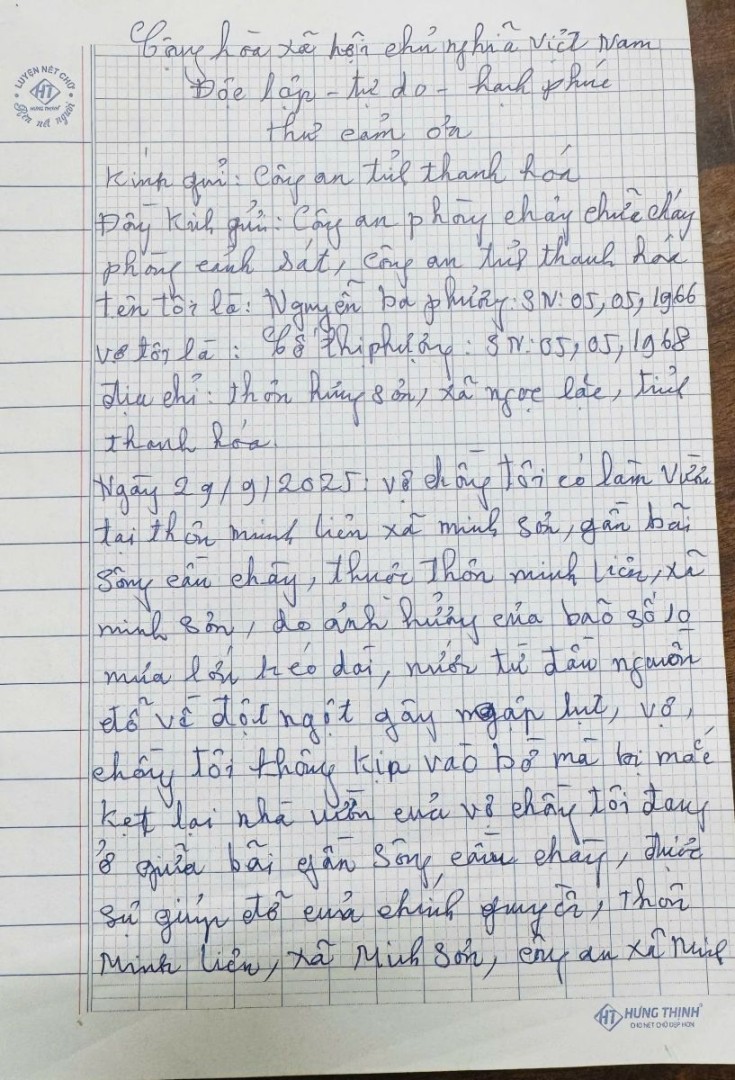 LUYỆN NÉT CHỮ
HT
HƯNG THỊNH
Rèn nết người
Cộng hòa xã hội chủ nghĩa việt Nam
Độc lập - tự do - hạnh phúc
thư cảm ơn
Kính gửi: Công an tỉnh thanh hóa
Đồng Kính gửi: Công an phòng cháy chữa cháy
phòng cảnh sát, công an tỉnh thanh hóa
tên tôi là: Nguyễn bá phương: SN: 05, 05, 1966
vợ tôi là: thị phượng: SN: 05, 05, 1968
địa chỉ: thôn hưng sơn, xã ngọc lặc, tỉnh
thanh hóa.
Ngày 29/9/2025: vợ chồng tôi có làm vườn
tại thôn minh liên xã minh sơn, gần bãi
sông cầu chày, thuộc thôn minh liên, xã
minh sơn, do ảnh hưởng của bão số 10
mưa lớn kéo dài, nước từ đầu nguồn
đổ về đột ngột gây ngập lụt, vợ,
chồng tôi không kịp vào bờ mà bị mắc
kẹt lại nhà vườn của vợ chồng tôi đang
ở giữa bãi gần sông cầu chày, được
sự giúp đỡ của chính quyền, thôn
Minh liên, xã Minh Sơn, công an xã Minh
HT HƯNG THỊNH
CHO NÉT CHỮ ĐẸP HƠN